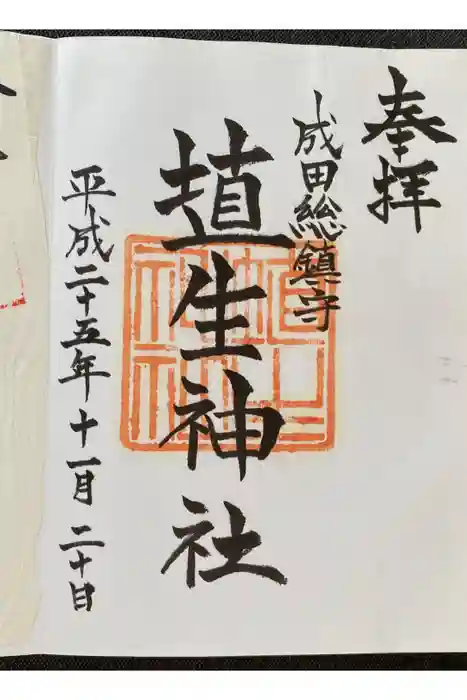 奉拝
成田総鎮守
埴生神社
平成二十五年十一月二十日